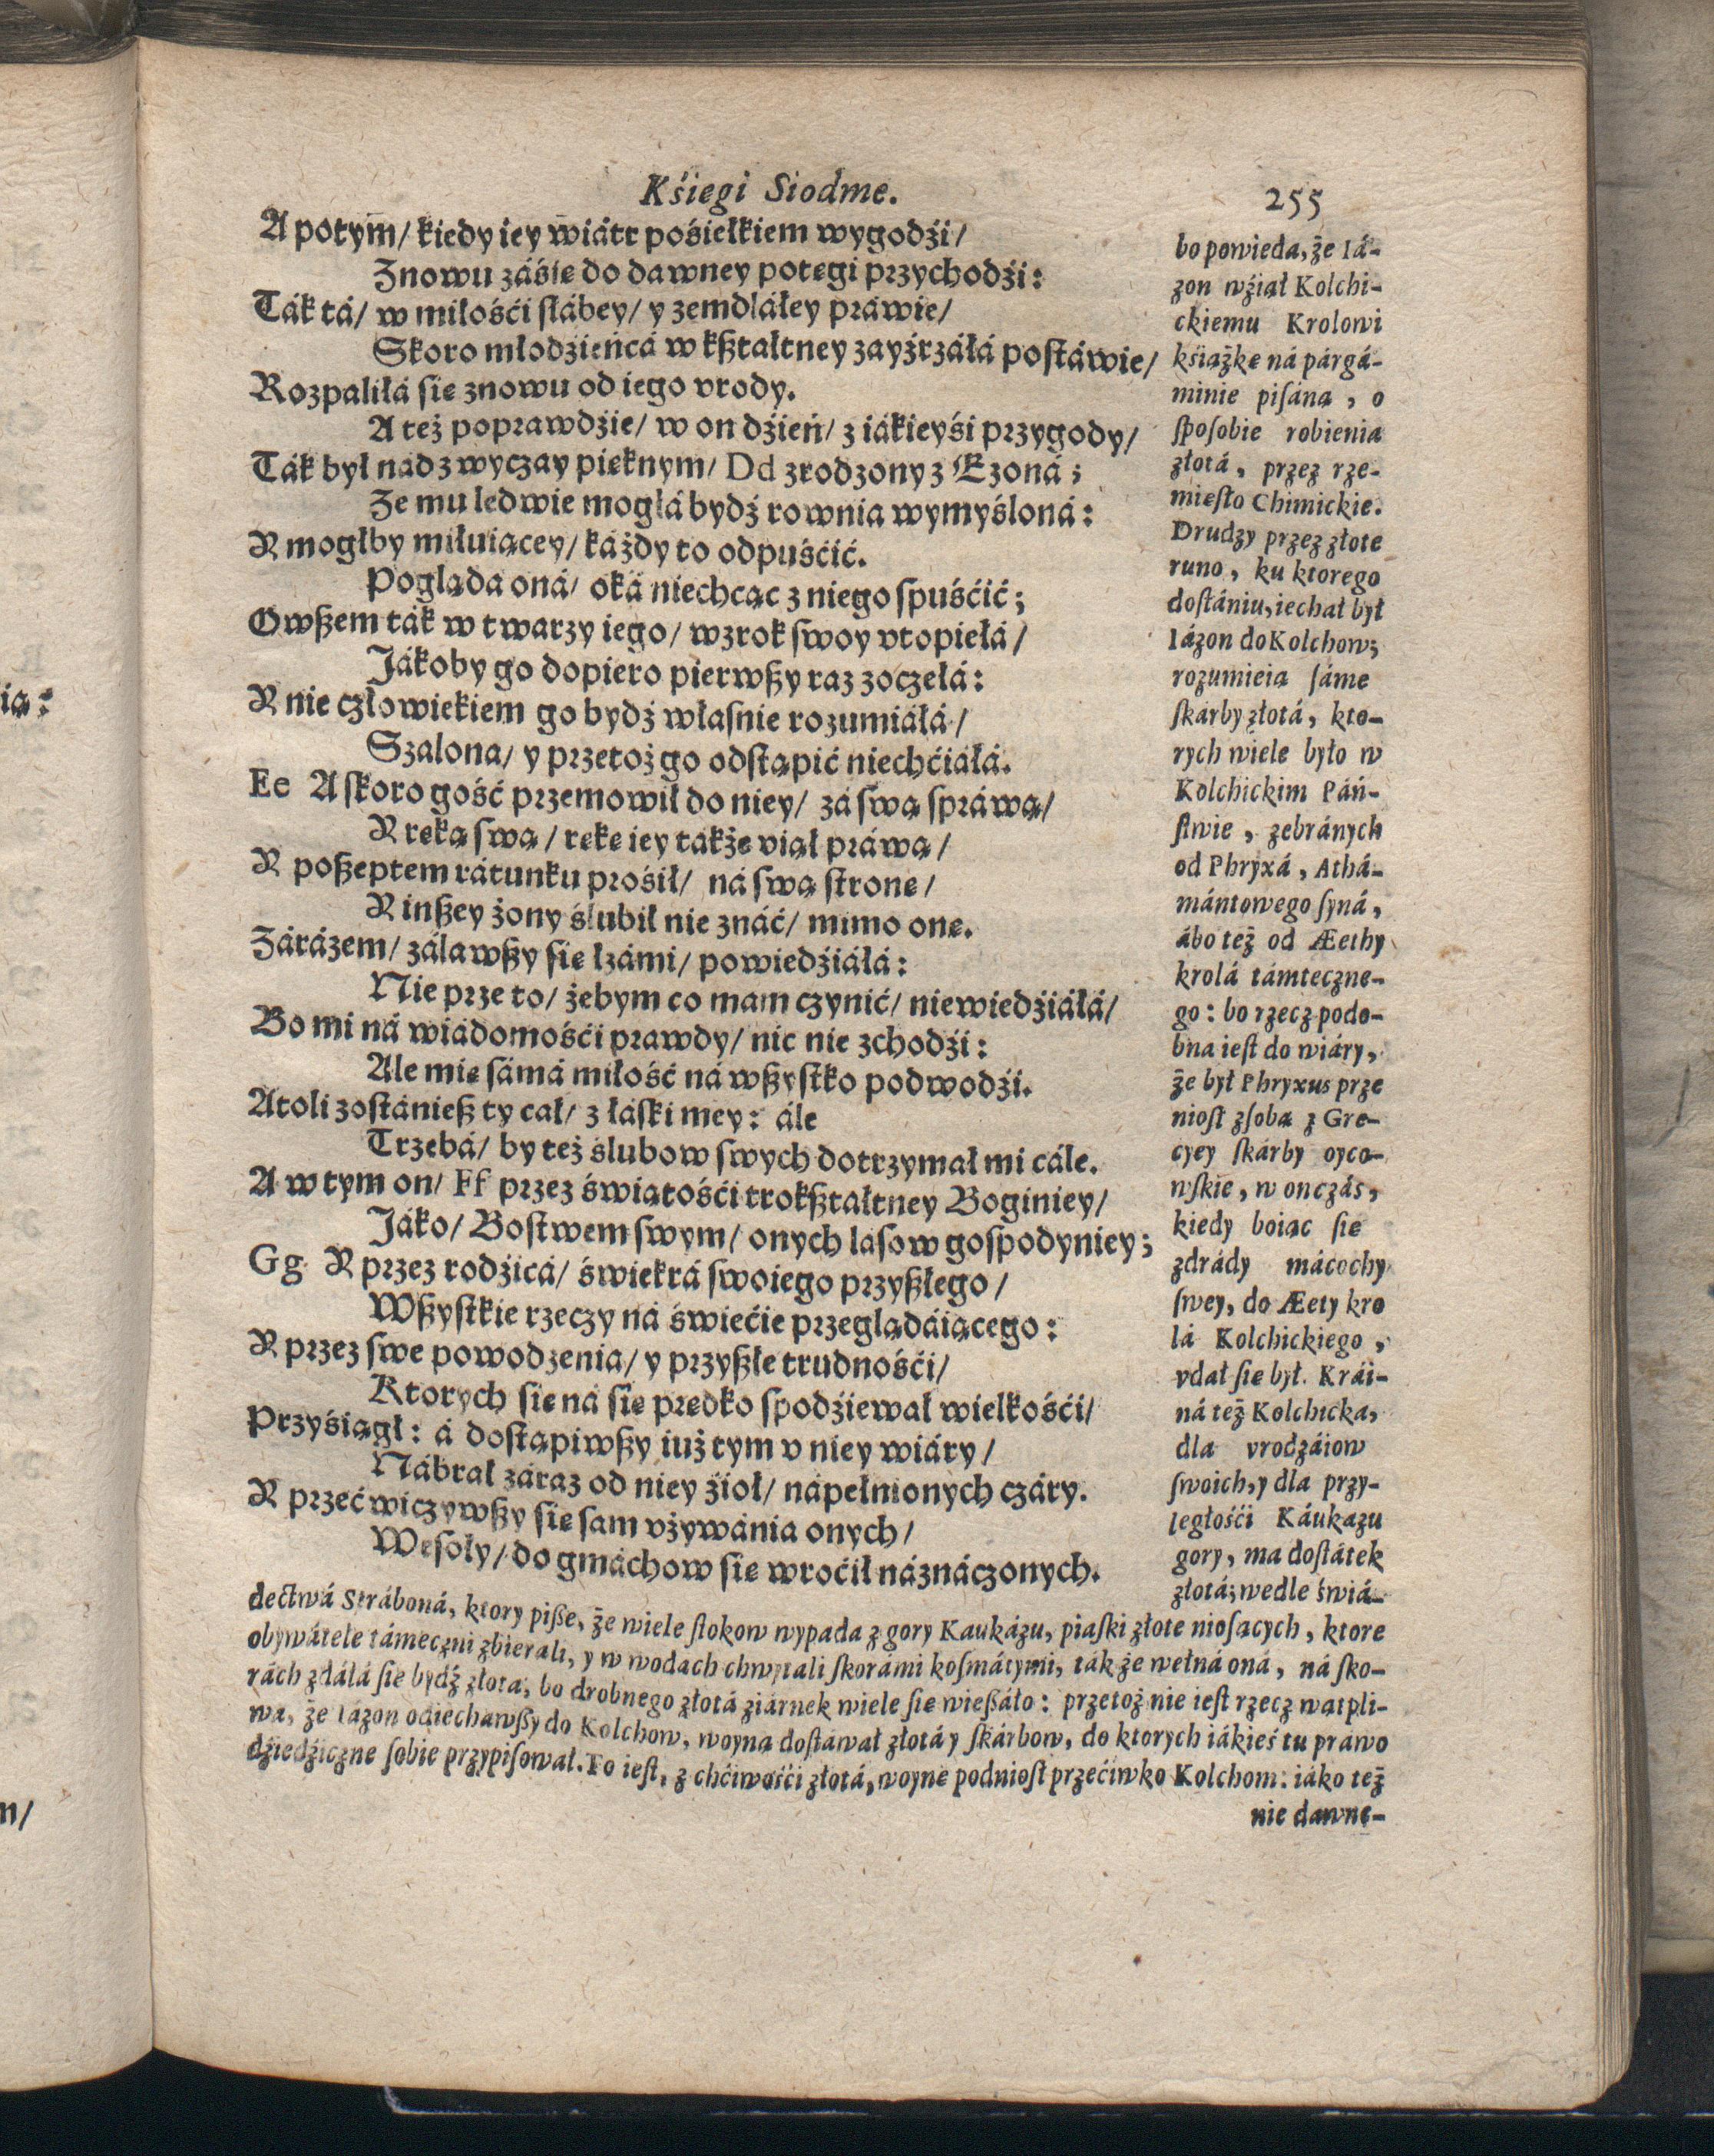 Kśiegi Siodme.
255
A potym/ kiedy iey wiátr pośiełkiem wygodźi/
Znowu záśie do dawney potęgi przychodźi:
Ták tá/ w miłośći słábey/ y zemdláłey práwie/
Skoro młodźieńcá w kształtney zayźrzáłá postáwie/
Rozpaliłá się znowu od iego vrody.
A też poprawdźie/ w on dźień/ z iákieyśi przygody/
Ták był nad zwyczay pięknym/ Dd zrodzony z Ezoná;
Że mu ledwie mogłá bydź rownia wymyśloná:
Y mogłby miłuiącey/ káżdy to odpuśćić.
Pogląda oná/ oká niechcąc z niego spuśćić;
Owszem ták w twarzy iego/ wzrok swoy vtopiełá/
Jákoby go dopiero pierwszy raz zoczełá:
Y nie człowiekiem go bydź własnie rozumiáłá/
Szalona/ y przetoż go odstąpić niechćiáłá.
Ee A skoro gość przemowił do niey/ zá swą spráwą/
Y ręką swą/ rękę iey tákże viął práwą/
Y poszeptem rátunku prośił/ ná swą stronę/
Y inszey żony ślubił nie znáć/ mimo onę.
Zárázem/ zálawszy się łzámi/ powiedźiáłá:
Nie prze to/ żebym co mam czynić/ niewiedźiáłá/
Bo mi ná wiádomośći prawdy/ nic nie zchodźi:
Ale mię sámá miłość ná wszystko podwodźi.
Atoli zostániesz ty cał/ z łáski mey: ále
Trzebá/ by też ślubow swych dotrzymał mi cále.
A w tym on/ Ff przez świątośći trokształtney Boginiey/
Jáko/ Bostwem swym/ onych lasow gospodyniey;
Gg Y przez rodźicá/ świekrá swoiego przyszłego/
Wszystkie rzeczy ná świećie przeglądáiącego:
Y przez swe powodzenia/ y przyszłe trudnośći/
Ktorych się ná się prędko spodźiewał wielkośći/
Przyśiągł: á dostąpiwszy iuż tym v niey wiáry/
Nábrał záraz od niey źioł/ nápełnionych czáry.
Y przećwiczywszy się sam vżywánia onych/
Wesoły/ do gmáchow się wroćił náznáczonych.
bo powieda, że Iá-
zon wźiął Kolchi-
ckiemu Krolowi
kśiążkę ná párgá-
minie pisáną, o
sposobie robienia
złotá, przez rze-
miesło Chimickie.
Drudzy przez złote
runo, ku ktorego
dostániu, iechał był
Iázon do Kolchow;
rozumieią sáme
skárby złotá, kto-
rych wiele było w
Kolchickim Páń-
stwie, zebránych
od Phryxá, Athá-
mántowego syná,
ábo też od Æethy
krolá támteczne-
go: bo rzecz podo-
bna iest do wiáry,
że był Phryxus prze
niosł z sobą z Gre-
cyey skárby oyco-
wskie, w on czás,
kiedy boiąc się
zdrády mácochy
swey, do Æety kro
lá Kolchickiego,
vdał się był. Krái-
ná też Kolchicka,
dla vrodzáiow
swoich, y dla przy-
ległośći Káukazu
gory, ma dostátek
złotá; wedle świá-
dectwá Stráboná, ktory pisze, że wiele stokow wypada z gory Kaukázu, piaski złote niosących, ktore
obywátele támeczni zbierali, y w wodach chwytali skorámi kosmátymi, ták że wełná oná, ná sko-
rách zdáłá się bydź złota, bo drobnego złotá ziárnek wiele się wieszáło: przetoż nie iest rzecz wątpli-
wa, że Iázon odiechawszy do Kolchow, woyną dostawał złotá y skárbow, do ktorych iákieś tu prawo
dźiedźiczne sobie przypisował. To iest, z chćiwośći złotá, woynę podniosł przećiwko Kolchom: iáko też
nie dawne-
ią:
n/